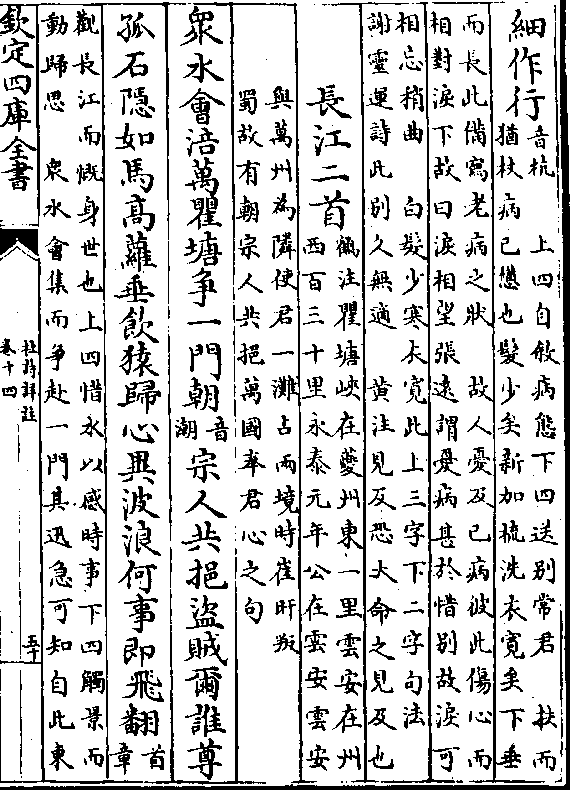 細作行
音杭　上四自叙病態下四送別常君　扶而
猶杖病已憊也髮少矣新加梳洗衣寛矣下垂
而長此備寫老病之狀　故人憂及己病彼此傷心而
相對淚下故曰淚相望張遠謂憂病甚於惜別故淚可
相忘稍曲　白髮少寒衣寛此上三字下二字句法
謝靈運詩此別久無適　黄注見及恐大命之見及也
長江二首
鶴注瞿塘峽在夔州東一里雲安在州
西百三十里永泰元年公在雲安雲安
與萬州為隣使君一灘占兩境時崔旰叛
蜀故有朝宗人共挹萬國奉君心之句
衆水會涪萬瞿塘争一門朝音潮宗人共挹盜賊爾誰尊
孤石隠如馬高蘿垂飲猿歸心異波浪何事即飛翻首章
觀長江而慨身世也上四惜水以感時事下四觸景而
動歸思　衆水會集而争赴一門其迅急可知自此東
欽定四庫全書
杜詩詳註
卷十四
五十